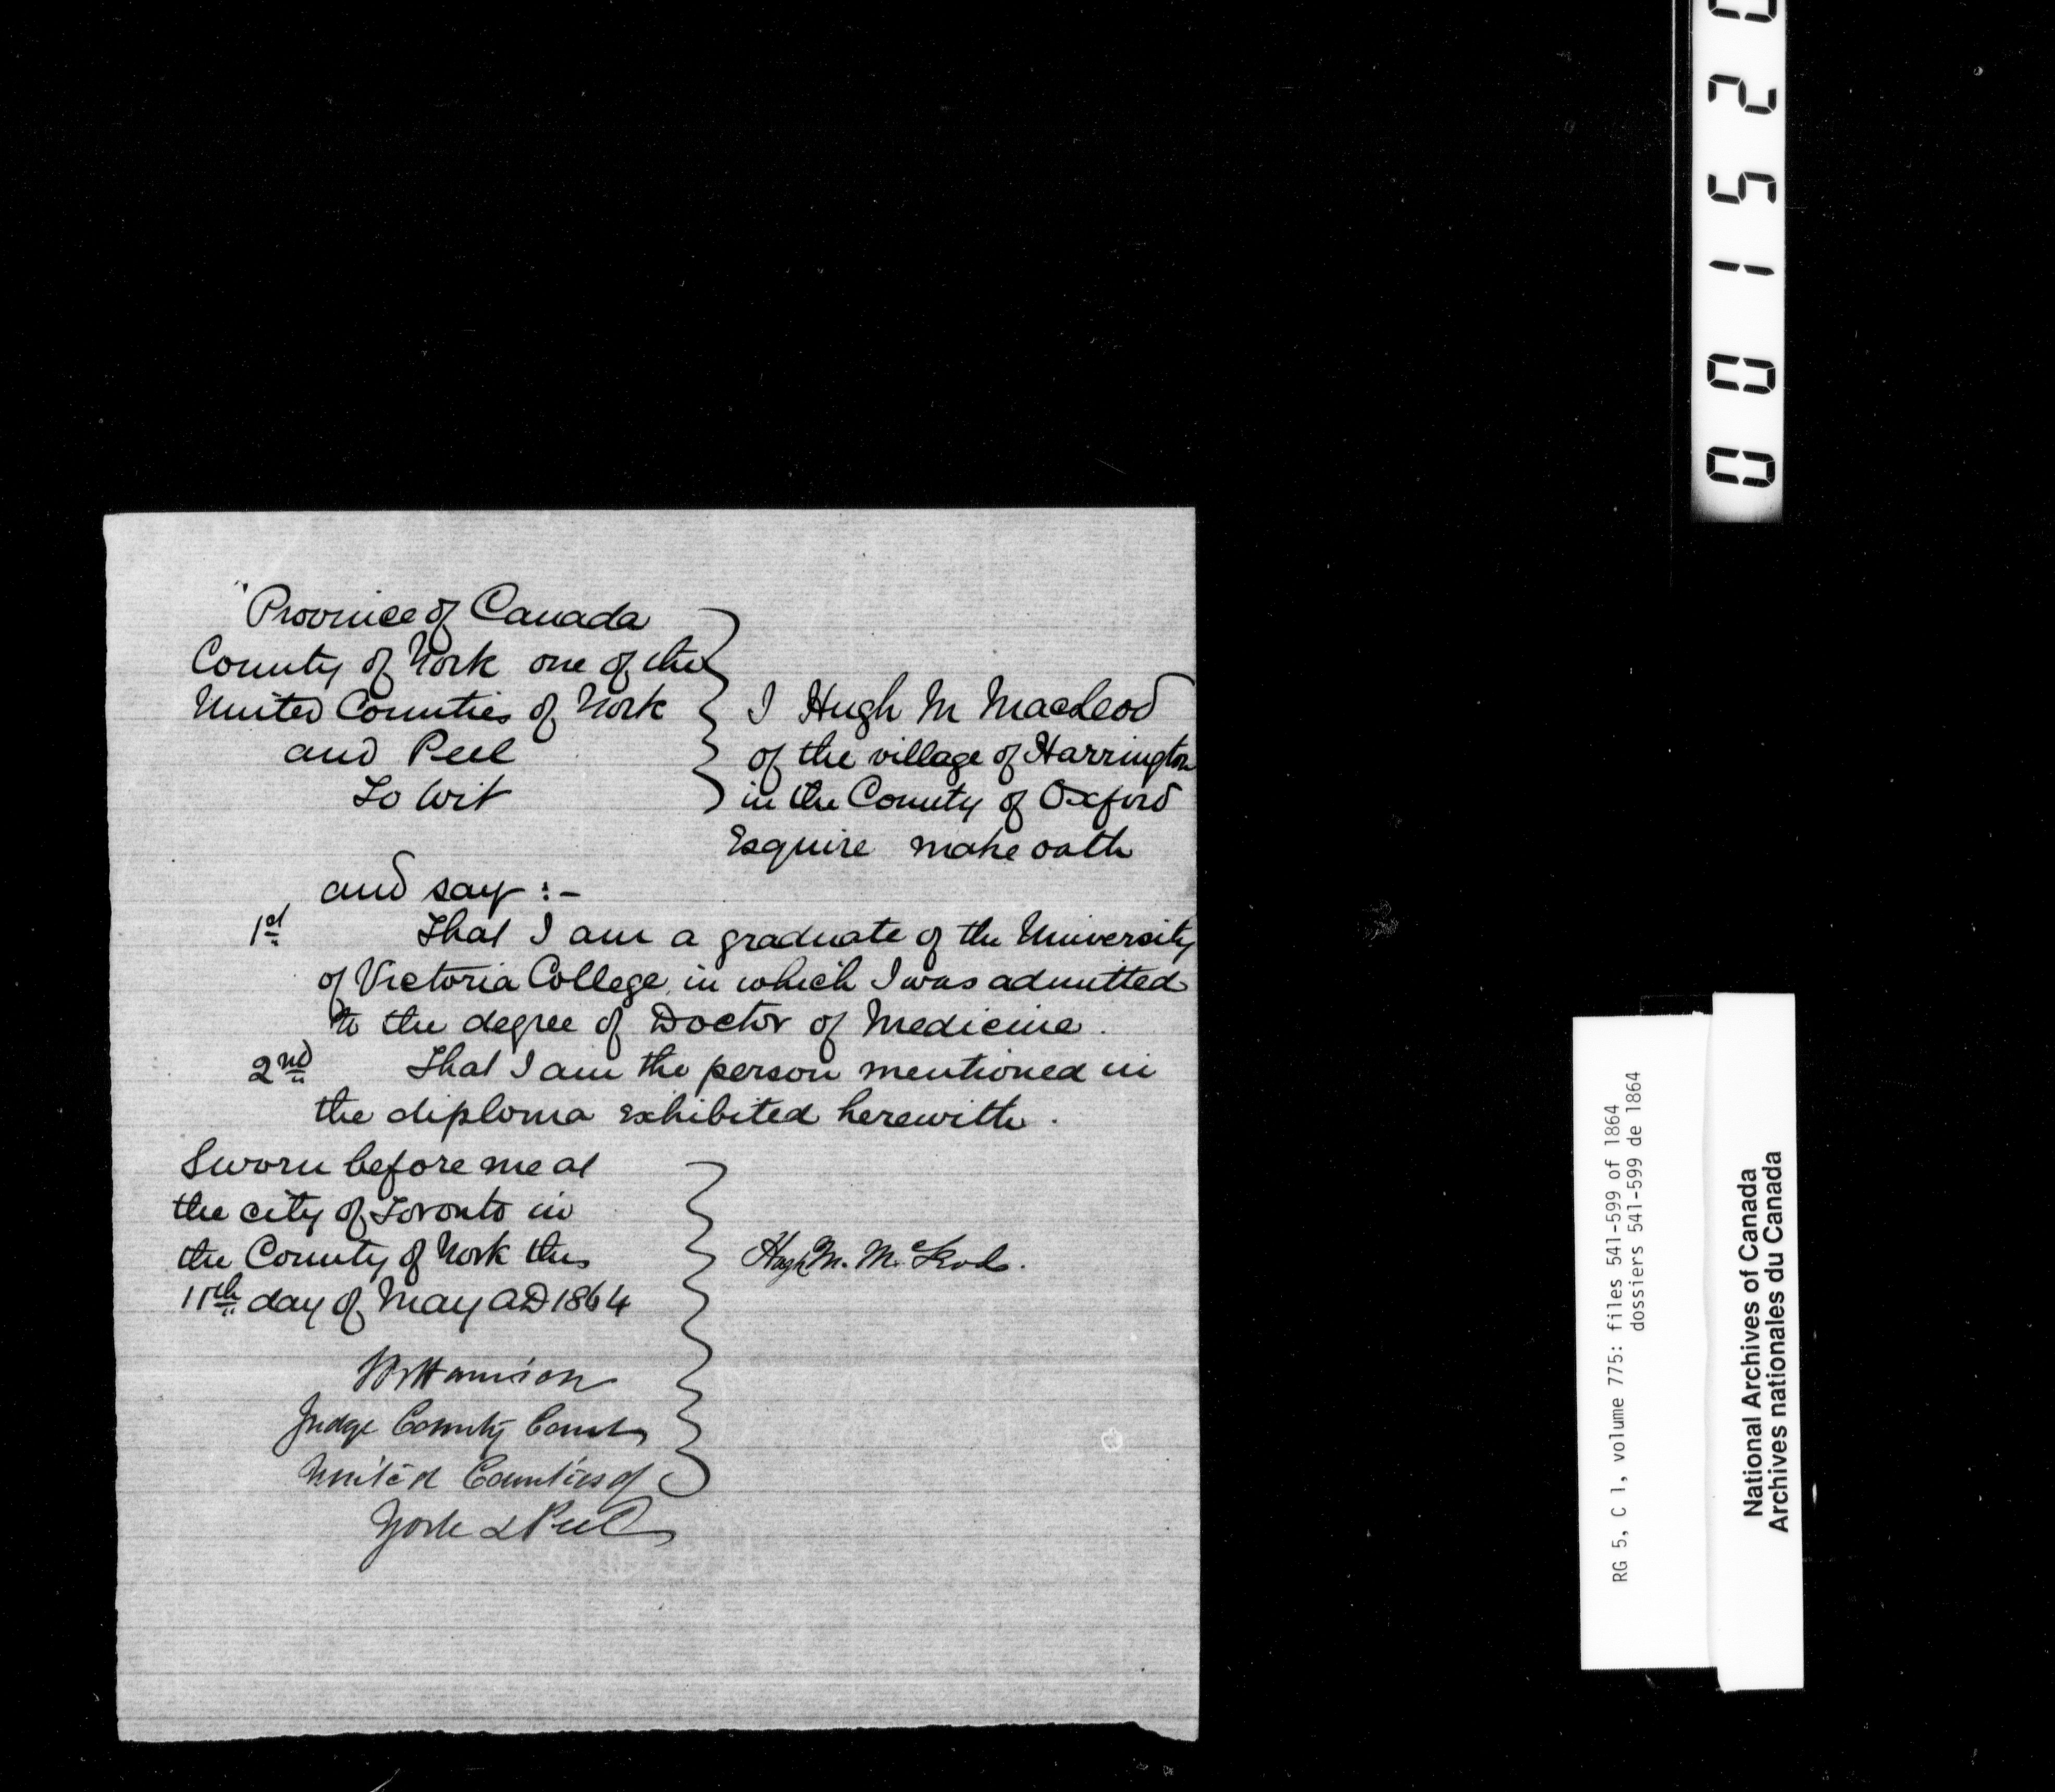 Province of Canada
County of York one of the
United Counties of York
and Peel
To Wit
I Hugh M MacLeod
of the village of Harrington
in the County of Oxford
Esquire make oath
and say :-
1st That I am a graduate of the University
of Victoria College in which I was admitted
to the degree of Doctor of Medicine.
2nd That I am the person mentioned in
the diploma exhibited herewith.
Sworn before me at
the city of Toronto in
the County of York this
11th day of May AD 1864
Hugh M. McLeod.
Harrison
Judge County Court
United Counties of
York & Peel
00152
RG 5, C 1, volume 775: files 541-599 of 1864
dossiers 541-599 de 1864
National Archives of Canada
Archives nationales du Canada